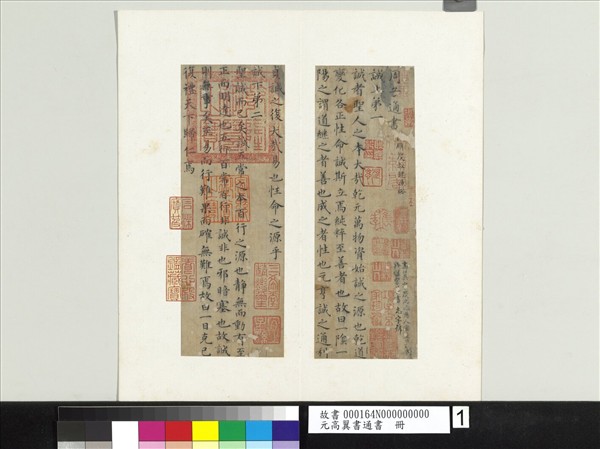 周子通書
誠上第一
誠者聖人之本大哉乾元萬物資始誠之源也乾道
變化各正性命誠斯立焉純粹至善者也故曰一陰一
陽之謂道繼之者善也成之者性也元亨誠之通利
貞誠之復大哉易也性命之源乎
誠下第二
聖誠而已矣誠五常之本百行之源也靜無而動有至
正而明達也五常百行非誠非也邪暗塞也故誠
則無事矣至易而行難果而確無難焉故曰一日克己
復禮天下歸仁焉
故書 000164N000000000
元高翼書通書 冊
1